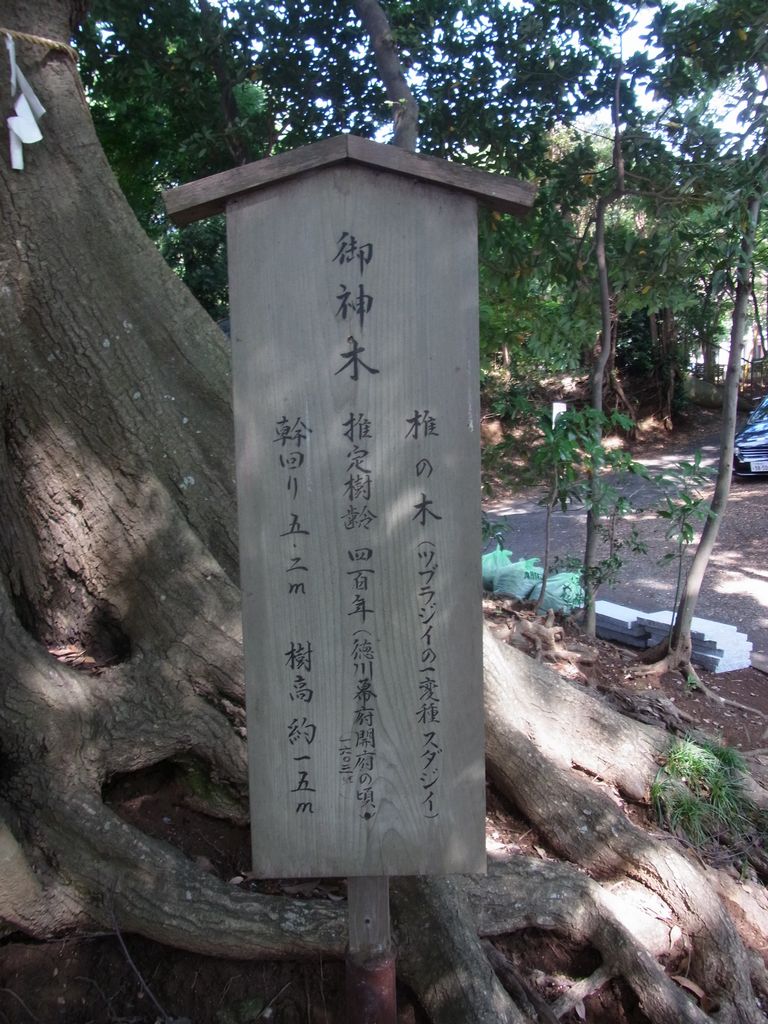 御神木
椎の木(ツブラジイの一変種スダジイ)
推定樹齢 四百年(徳川幕府開府の頃)
一六〇三年
幹回り 五.二m 樹高 約一五m